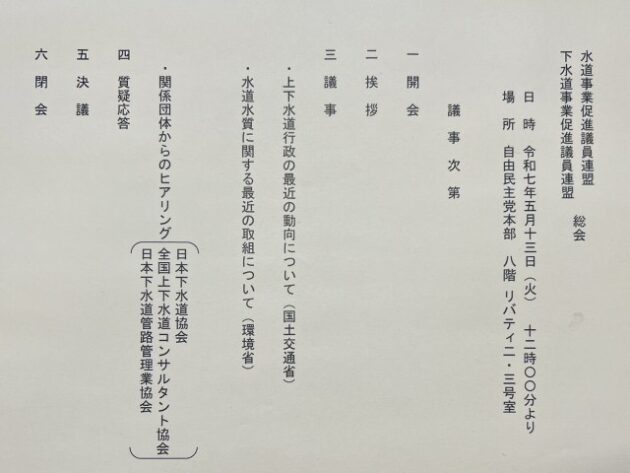 水道事業促進議員連盟
下水道事業促進議員連盟
総会
日 時 令和七年五月十三日（火） 十二時〇〇分より
場 所 自由民主党本部 八階 リバティ二・三号室
議 事 次 第
一 開 会
二 挨 拶
三 議 事
・上下水道行政の最近の動向について（国土交通省）
・水道水質に関する最近の取組について（環境省）
・関係団体からのヒアリング
日本下水道協会
全国上下水道コンサルタント協会
日本下水道管路管理業協会
四 質疑応答
五 決 議
六 閉 会